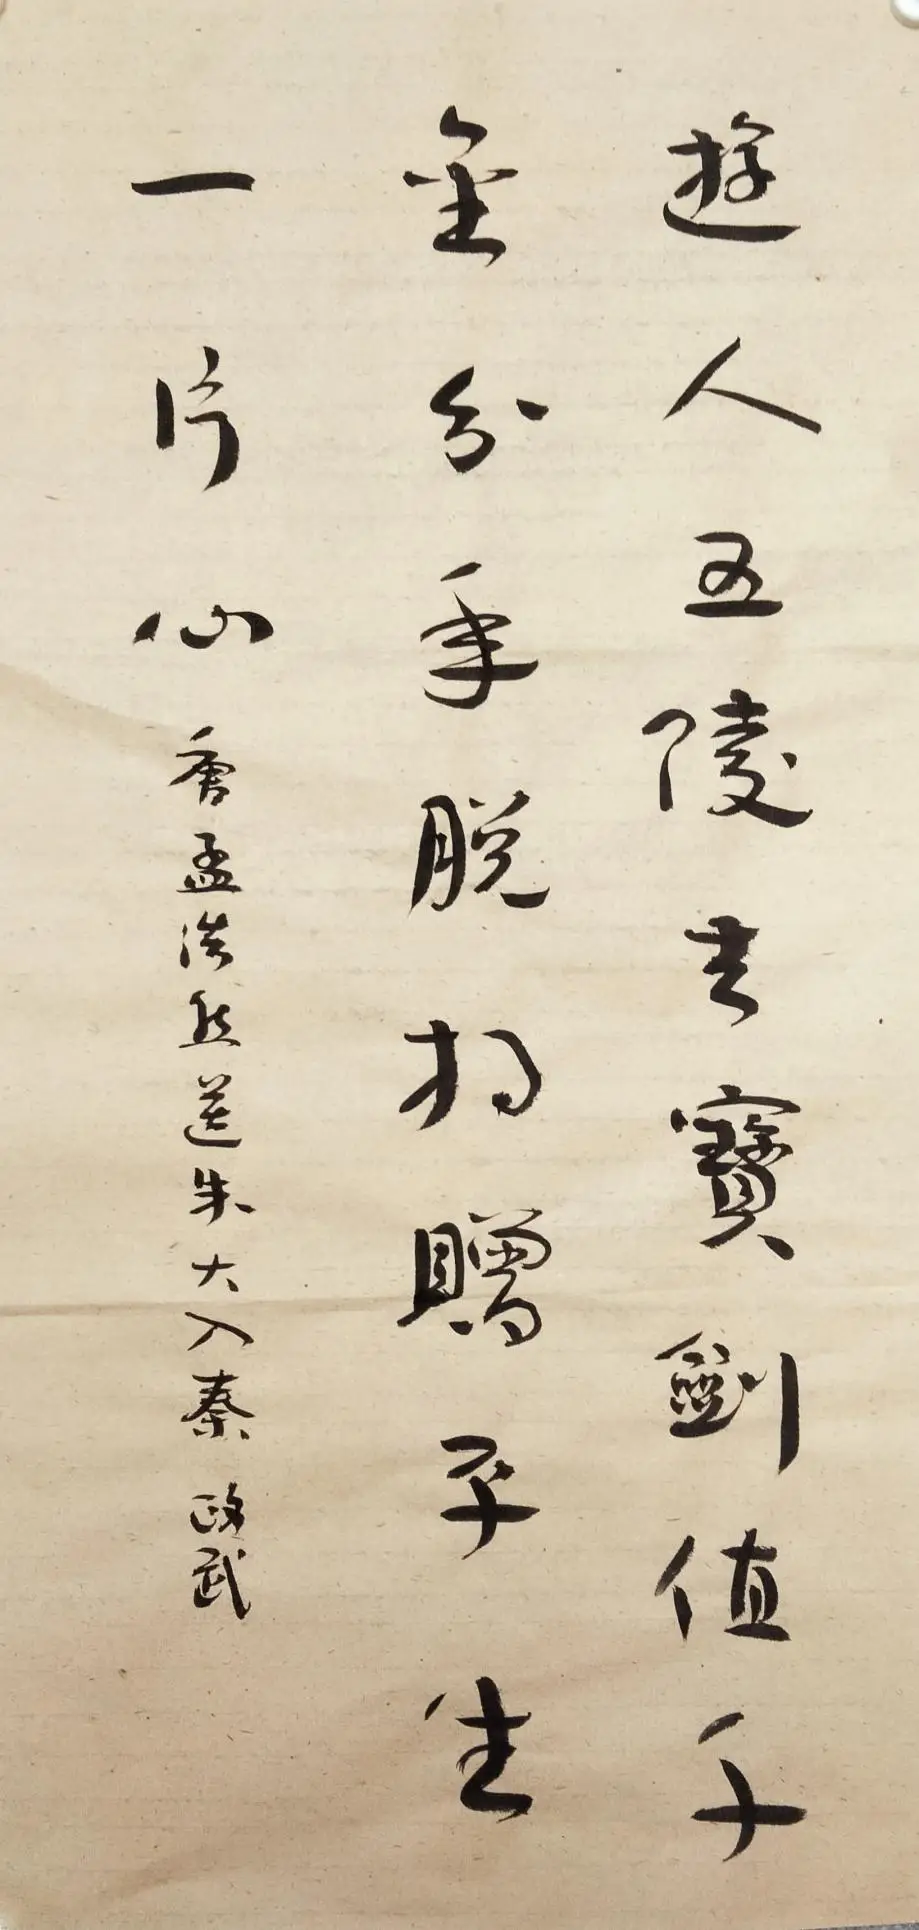 遊人五陵去寶劍值千
金分手脱相贈平生
一片心 唐孟浩然送朱大入秦 政武